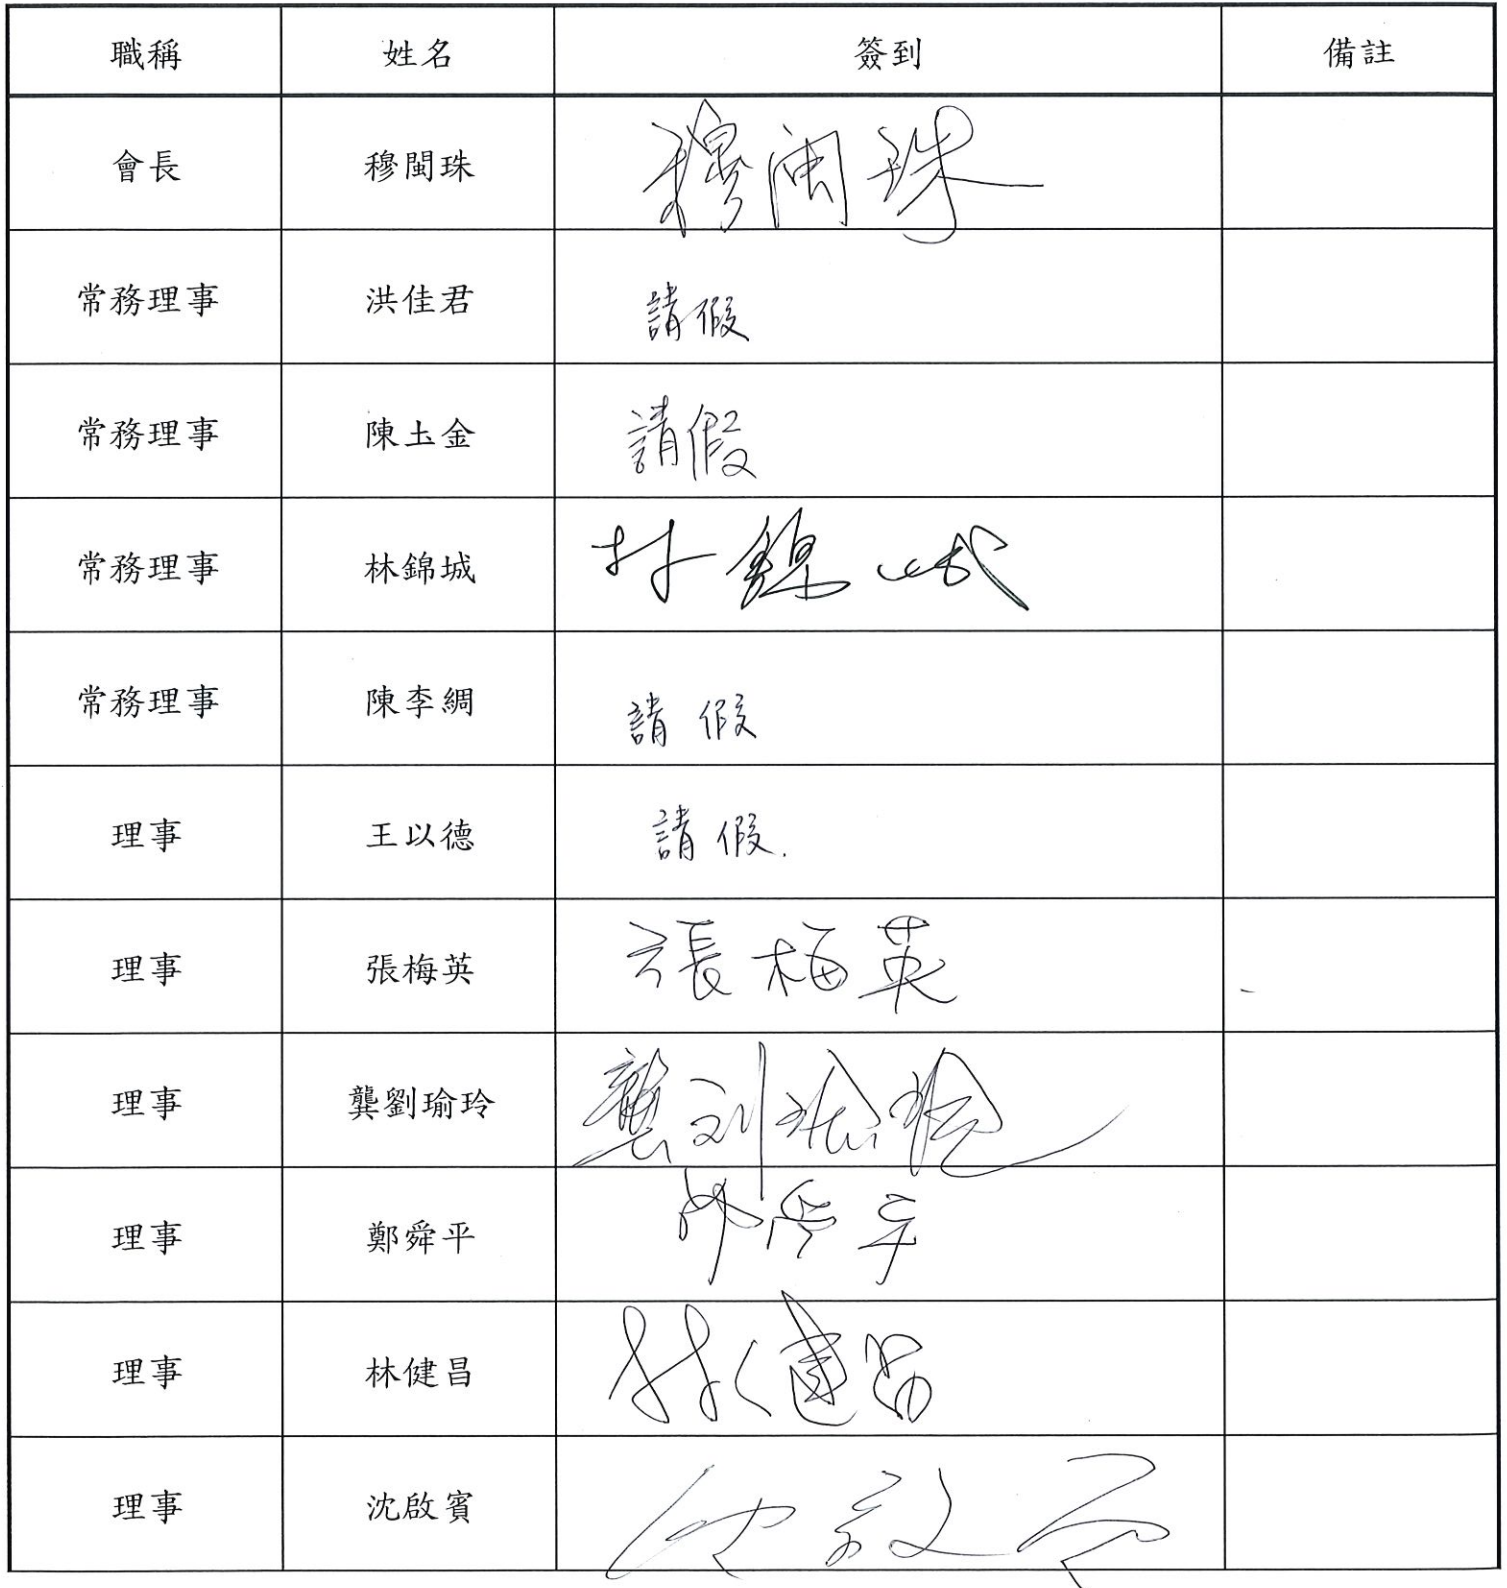 職稱 姓名 簽到 備註
會長 穆閩珠 穆閩珠
常務理事 洪佳君 請假
常務理事 陳圡金 請假
常務理事 林錦城 林錦城
常務理事 陳李綢 請假
理事 王以德 請假.
理事 張梅英 張梅英
理事 龔劉瑜玲 龔劉瑜玲
理事 鄭舜平 鄭舜平
理事 林健昌 林健昌
理事 沈啟賓 沈啟賓